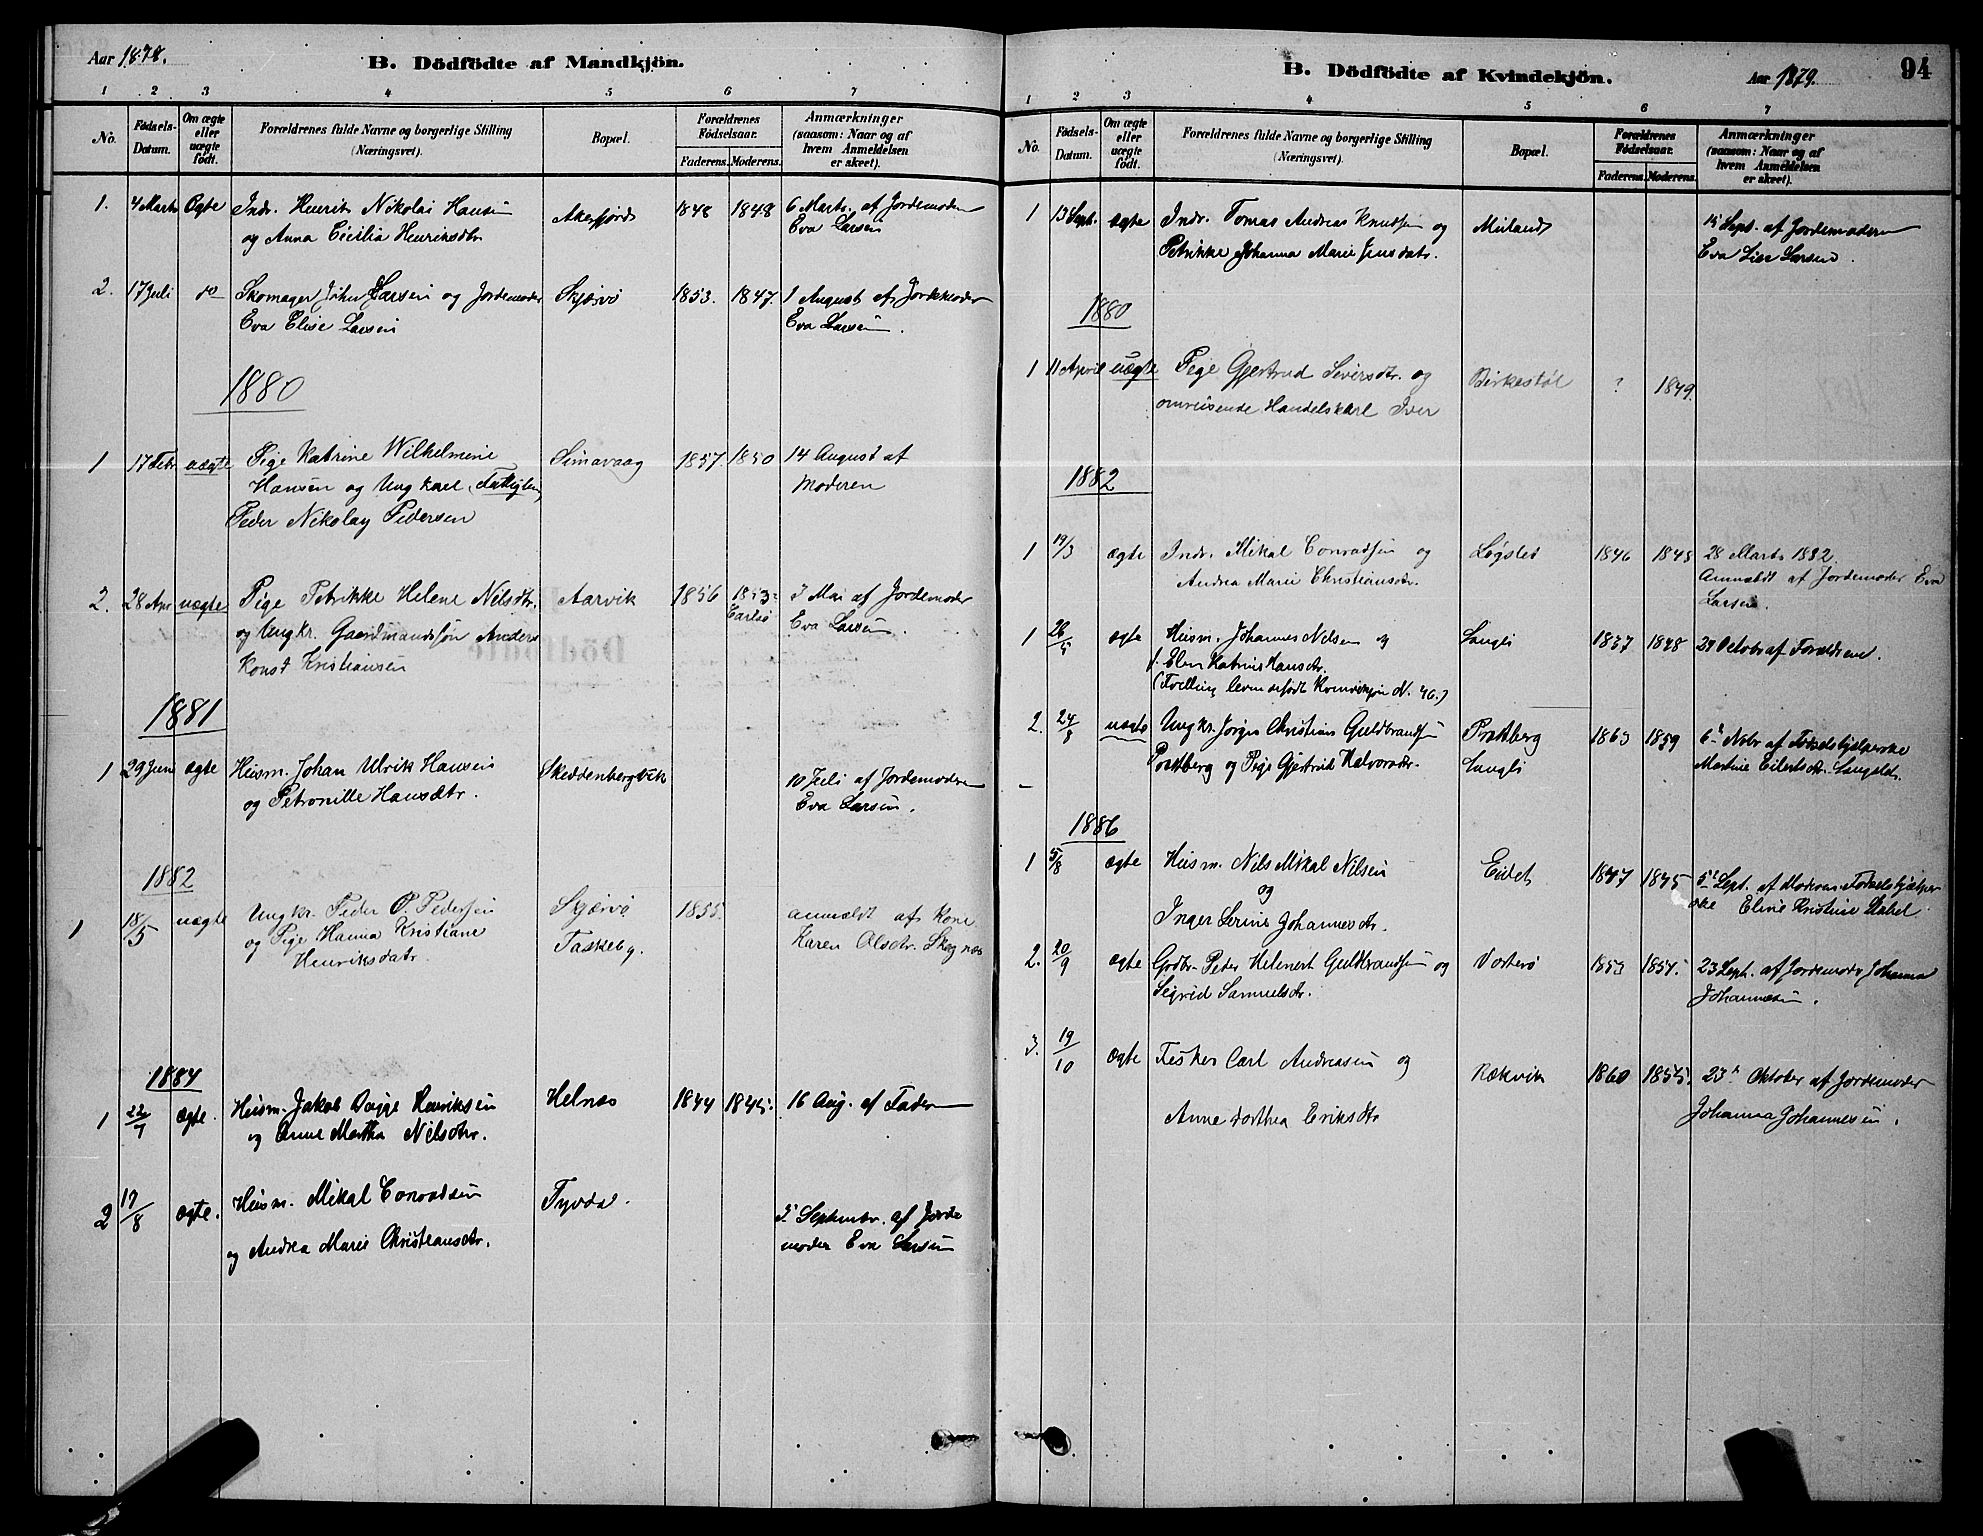 Aar 1878.
B. Dödfödte af Mandkjön.
1 2 3 4 5 6 7
No.
Fødsels-
Datum.
Om ægte
eller
uægte
født.
Forældrenes fulde Navne og borgerlige Stilling
(Næringsvei).
Bopæl.
Forældrenes
Fødselsaar.
Faderens. Moderens.
Anmærkninger
(saasom: Naar og af
hvem Anmeldelsen
er skeet).
1. 4 Marts Ægte Indr. Henrik Nikolai Hansen Akkefjord 1848 1848 6 Marts. af Jordemoder
og Anna Cicilia Henriksdtr Eva Larsen
2. 17 Juli do Skomager John Larsen og Jordemoder Skjærvø 1853. 1847. 1 August af Jordemoder
Eva Elise Larsen Eva Larsen.
1880
1 17 Febr uægte Pige Katrine Wilhelmine Simavaag 1857. 1850 14 August af
Hansen og Ungkarl, Fattiglem, Moderen
Peder Nikolay Pedersen
2. 28 Apr uægte Pige Petrikke Helene Nilsdtr. Aarvik 1856 1853. 3 Mai af Jordemoder
og Ungkr. Gaardmandssøn Anders Carlsø Eva Larsen.
Konst Kristiansen
1881
1 29 Juni ægte Husm. Johan Ulrik Hansen Skeddenbergvik 10 Juli af Jordemoderen
og Petronille Hansdtr. Eva Larsen.
1882
1 18/5 uægte Ungkr. Peder P. Pedersen Skjærvø 1855. anmeldt af Kone
og Pige Hanna Kristiane Taskeby. Karen Olsdtr. Skognæs
Henriksdatr.
1884
1 22/7 ægte. Husm. Jakob Dagge Henriksen Helnæs 1844 1845. 16 Aug. af Faderen
og Anne Martha Nilsdtr.
2 17/8 ægte. Husm. Mikal Conradsen Tyvdal. 5' Septembr. af Jorde
og Andrea Marie Christiansdtr. moder Eva Larsen
B. Dödfödte af Kvindekjön.
Aar 1879.
94
1 2 3 4 5 6 7
No.
Fødsels-
Datum.
Om ægte
eller
uægte
født.
Forældrenes fulde Navne og borgerlige Stilling
(Næringsvei).
Bopæl.
Forældrenes
Fødselsaar.
Faderens. Moderens.
Anmærkninger
(saasom: Naar og af
hvem Anmeldelsen
er skeet).
1 13 Sept. ægte Indr. Tomas Andreas Knudsen og Meiland 15 Sept. af Jordemoderen
Petrikke Johanna Marie Jensdatr. Eva Lise Larsen.
1880
1 11 April uægte Pige Gjertrud Seversdtr. og Birkestøl ? 1849.
omreisende Handelskarl Iver
1882
1 19/3 ægte Indr. Mikal Conradsen og Løgslet 1846 1848 28 Marts 1882
Andrea Marie Christiansdtr. Anmeldt af Jordemoder Eva
Larsen.
1 26/5 ægte Husm. Johannes Nilsen og Langli 1837 1848 24 Octobr af Forældrene.
Elen Katrine Hansdtr.
(Tvilling levendefødt Kvindekjøn N. 46.)
2. 24/8 uægte Ungkr. Jørgen Christian Guldbrandsen Prostberg 1863 1859 6' Nobr af Fødselshjælperske
Prostberg og Pige Gjertrud Halvorsdtr. Langli Martine Eilertsdtr. Langslet.
1886
1 5/8 ægte Husm. Nils Mikal Nilsen Eidet 1847 1845 5' Sept. af Moderens Fødselshjælper
og ske Eline Kristine Stabel
Inger Serine Johannesdtr.
2. 20/9 ægte Grdbr. Peder Helmert Guldbrandsen og Vorterø 1853 1854. 23 Sept. af Jordemoder Johanna
Sigrid Samuelsdtr. Johannesen.
3. 19/10 ægte Fisker Carl Andreasen og Rækvik 1860 1855. 23' Oktober af Jordemoder
Anne Dorthea Eriksdtr Johanna Johannesen.